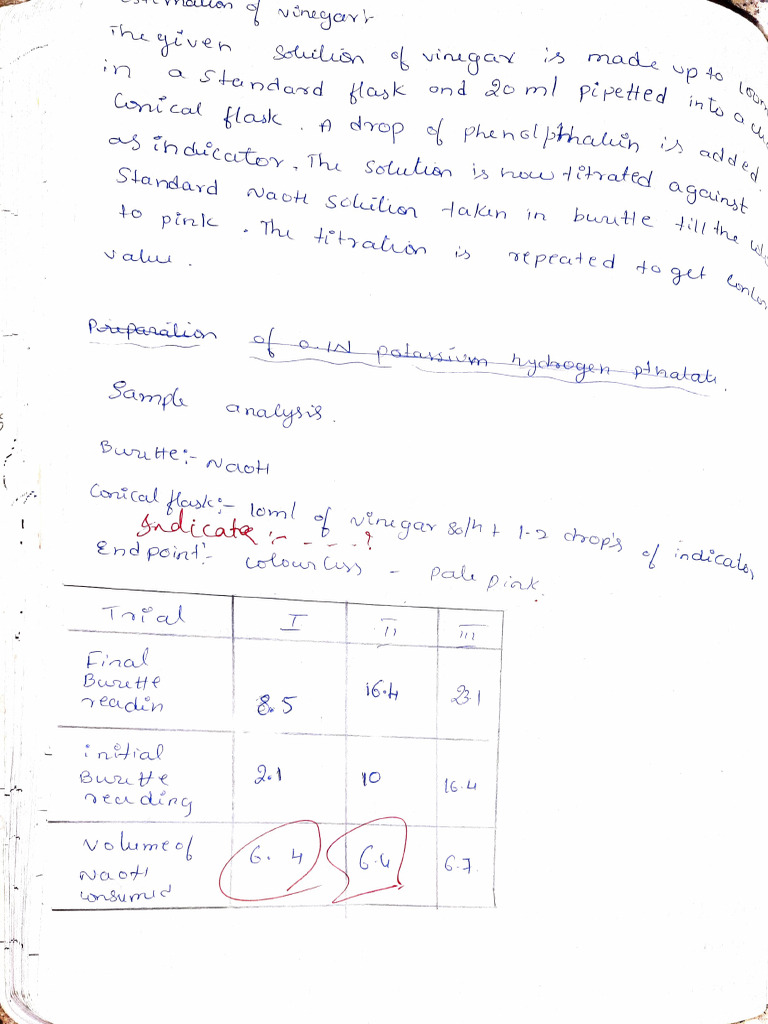 Estimation of vinegar:
The given solution of vinegar is made up to 100m
in a standard flask and 20 ml pipetted into a
Conical flask. A drop of phenolpthalein is added.
as indicator. The solution is now titrated against
Standard NaOH solution taken in burette till the
to pink. The titration is repeated to get
value.
Preparation of 0.1N potassium hydrogen pthalate.
Sample analysis.
Burette:- NaOH
Conical flask:- 10ml of vinegar soln + 1-2 drop's of indicator
Indicate :- - - - ?
End point:- colourless - pale pink.
Trial I II III
Final
Burette
readin 8.5 16.4 23.1
initial
Burette
reading 2.1 10 16.4
Volume of
NaOH
consumed 6.4 6.4 6.7